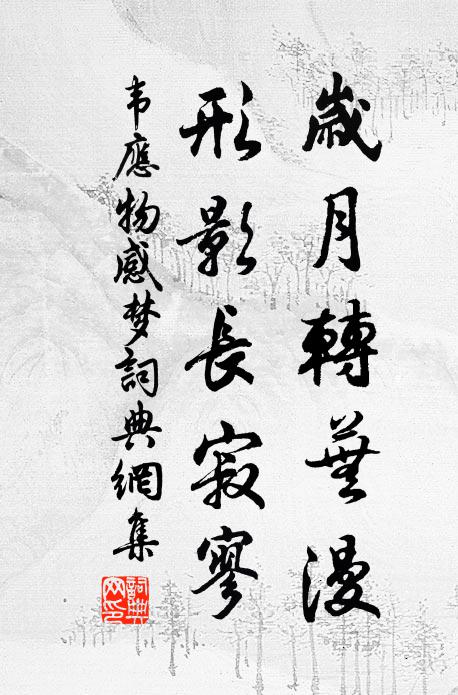 歲月轉蕪漫
形影長寂寥
韦應物感梦詞典網集